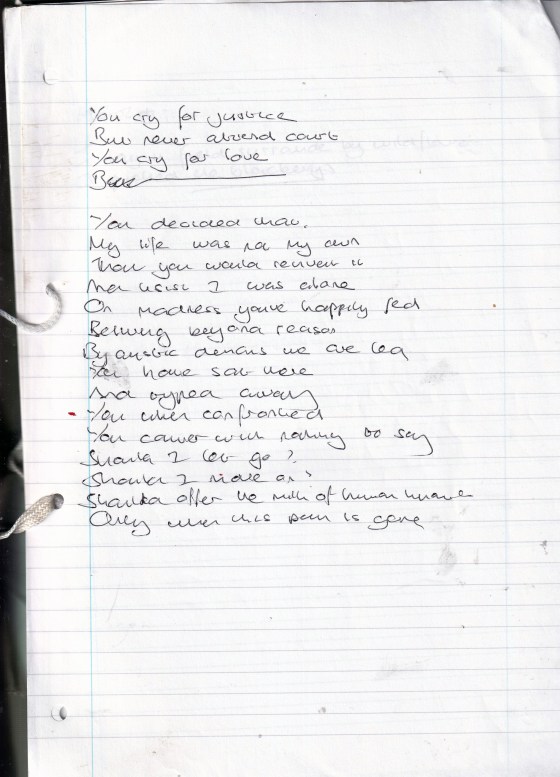 You cry for justice
But never attend court
You cry for love
You decided that.
My life was not my own
That you would reinvent it
And insist I was alone
On madness you've happily fed
Believing beyond reason
By autistic demons we are led
You have sat here
And typed away
You when confronted
You came with nothing to say
Should I let go?
Should I move on?
Should offer the milk of human
Only when this pain is gone